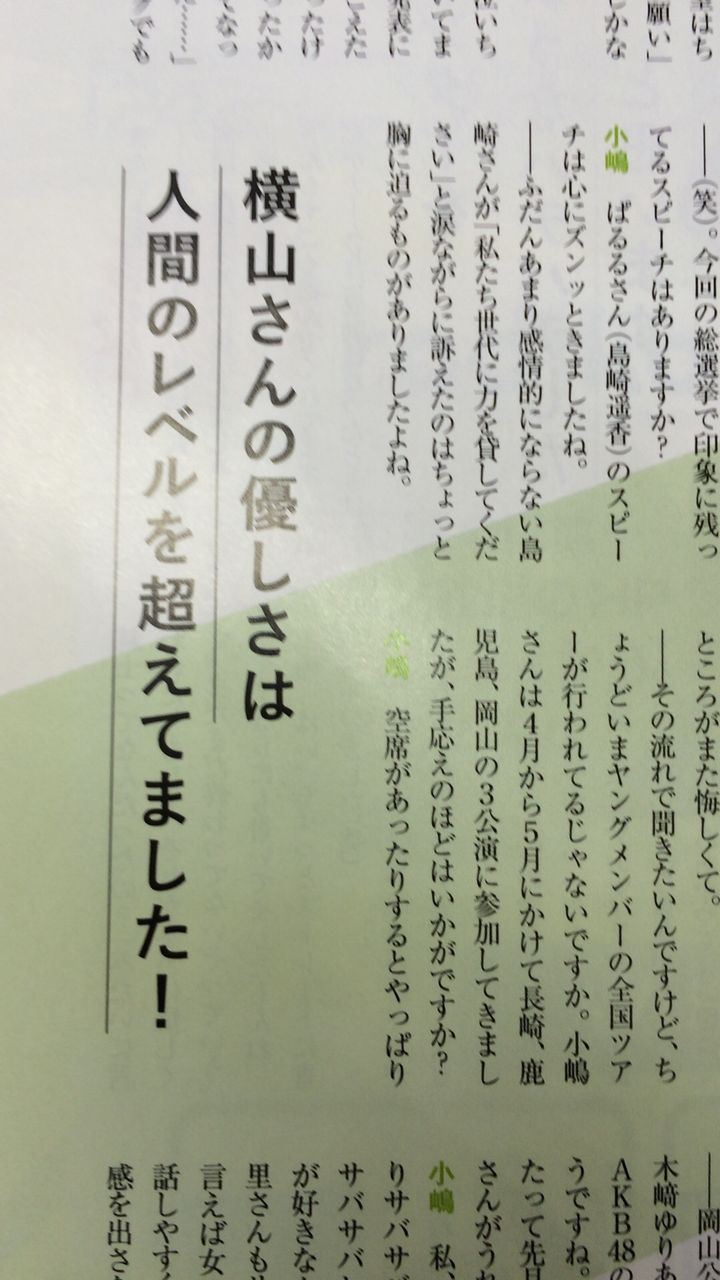 室はち
願い」
しかな
泣いち
いてま
発表に
こえた
ったけ
ったか
てなっ
……」
でも
――(笑)。今回の総選挙で印象に残っ
てるスピーチはありますか?
小嶋 ぱるるさん(島崎遥香)のスピー
チは心にズンッときましたね。
――ふだんあまり感情的にならない島
崎さんが「私たち世代に力を貸してくだ
さい」と涙ながらに訴えたのはちょっと
胸に迫るものがありましたよね。
横山さんの優しさは
人間のレベルを超えてました!
ところがまた悔しくて。
――その流れで聞きたいんですけど、ち
ょうどいまヤングメンバーの全国ツア
ーが行われてるじゃないですか。小嶋
さんは4月から5月にかけて長崎、鹿
児島、岡山の3公演に参加してきまし
たが、手応えのほどはいかがですか?
小嶋 空席があったりするとやっぱり
――岡山公
木﨑ゆりあ
AKB48の
うですね。
たって先
さんがう
小嶋 私、
りサバサ
サバサバ
が好きな
里さんも
言えば女
話しやす
感を出さ